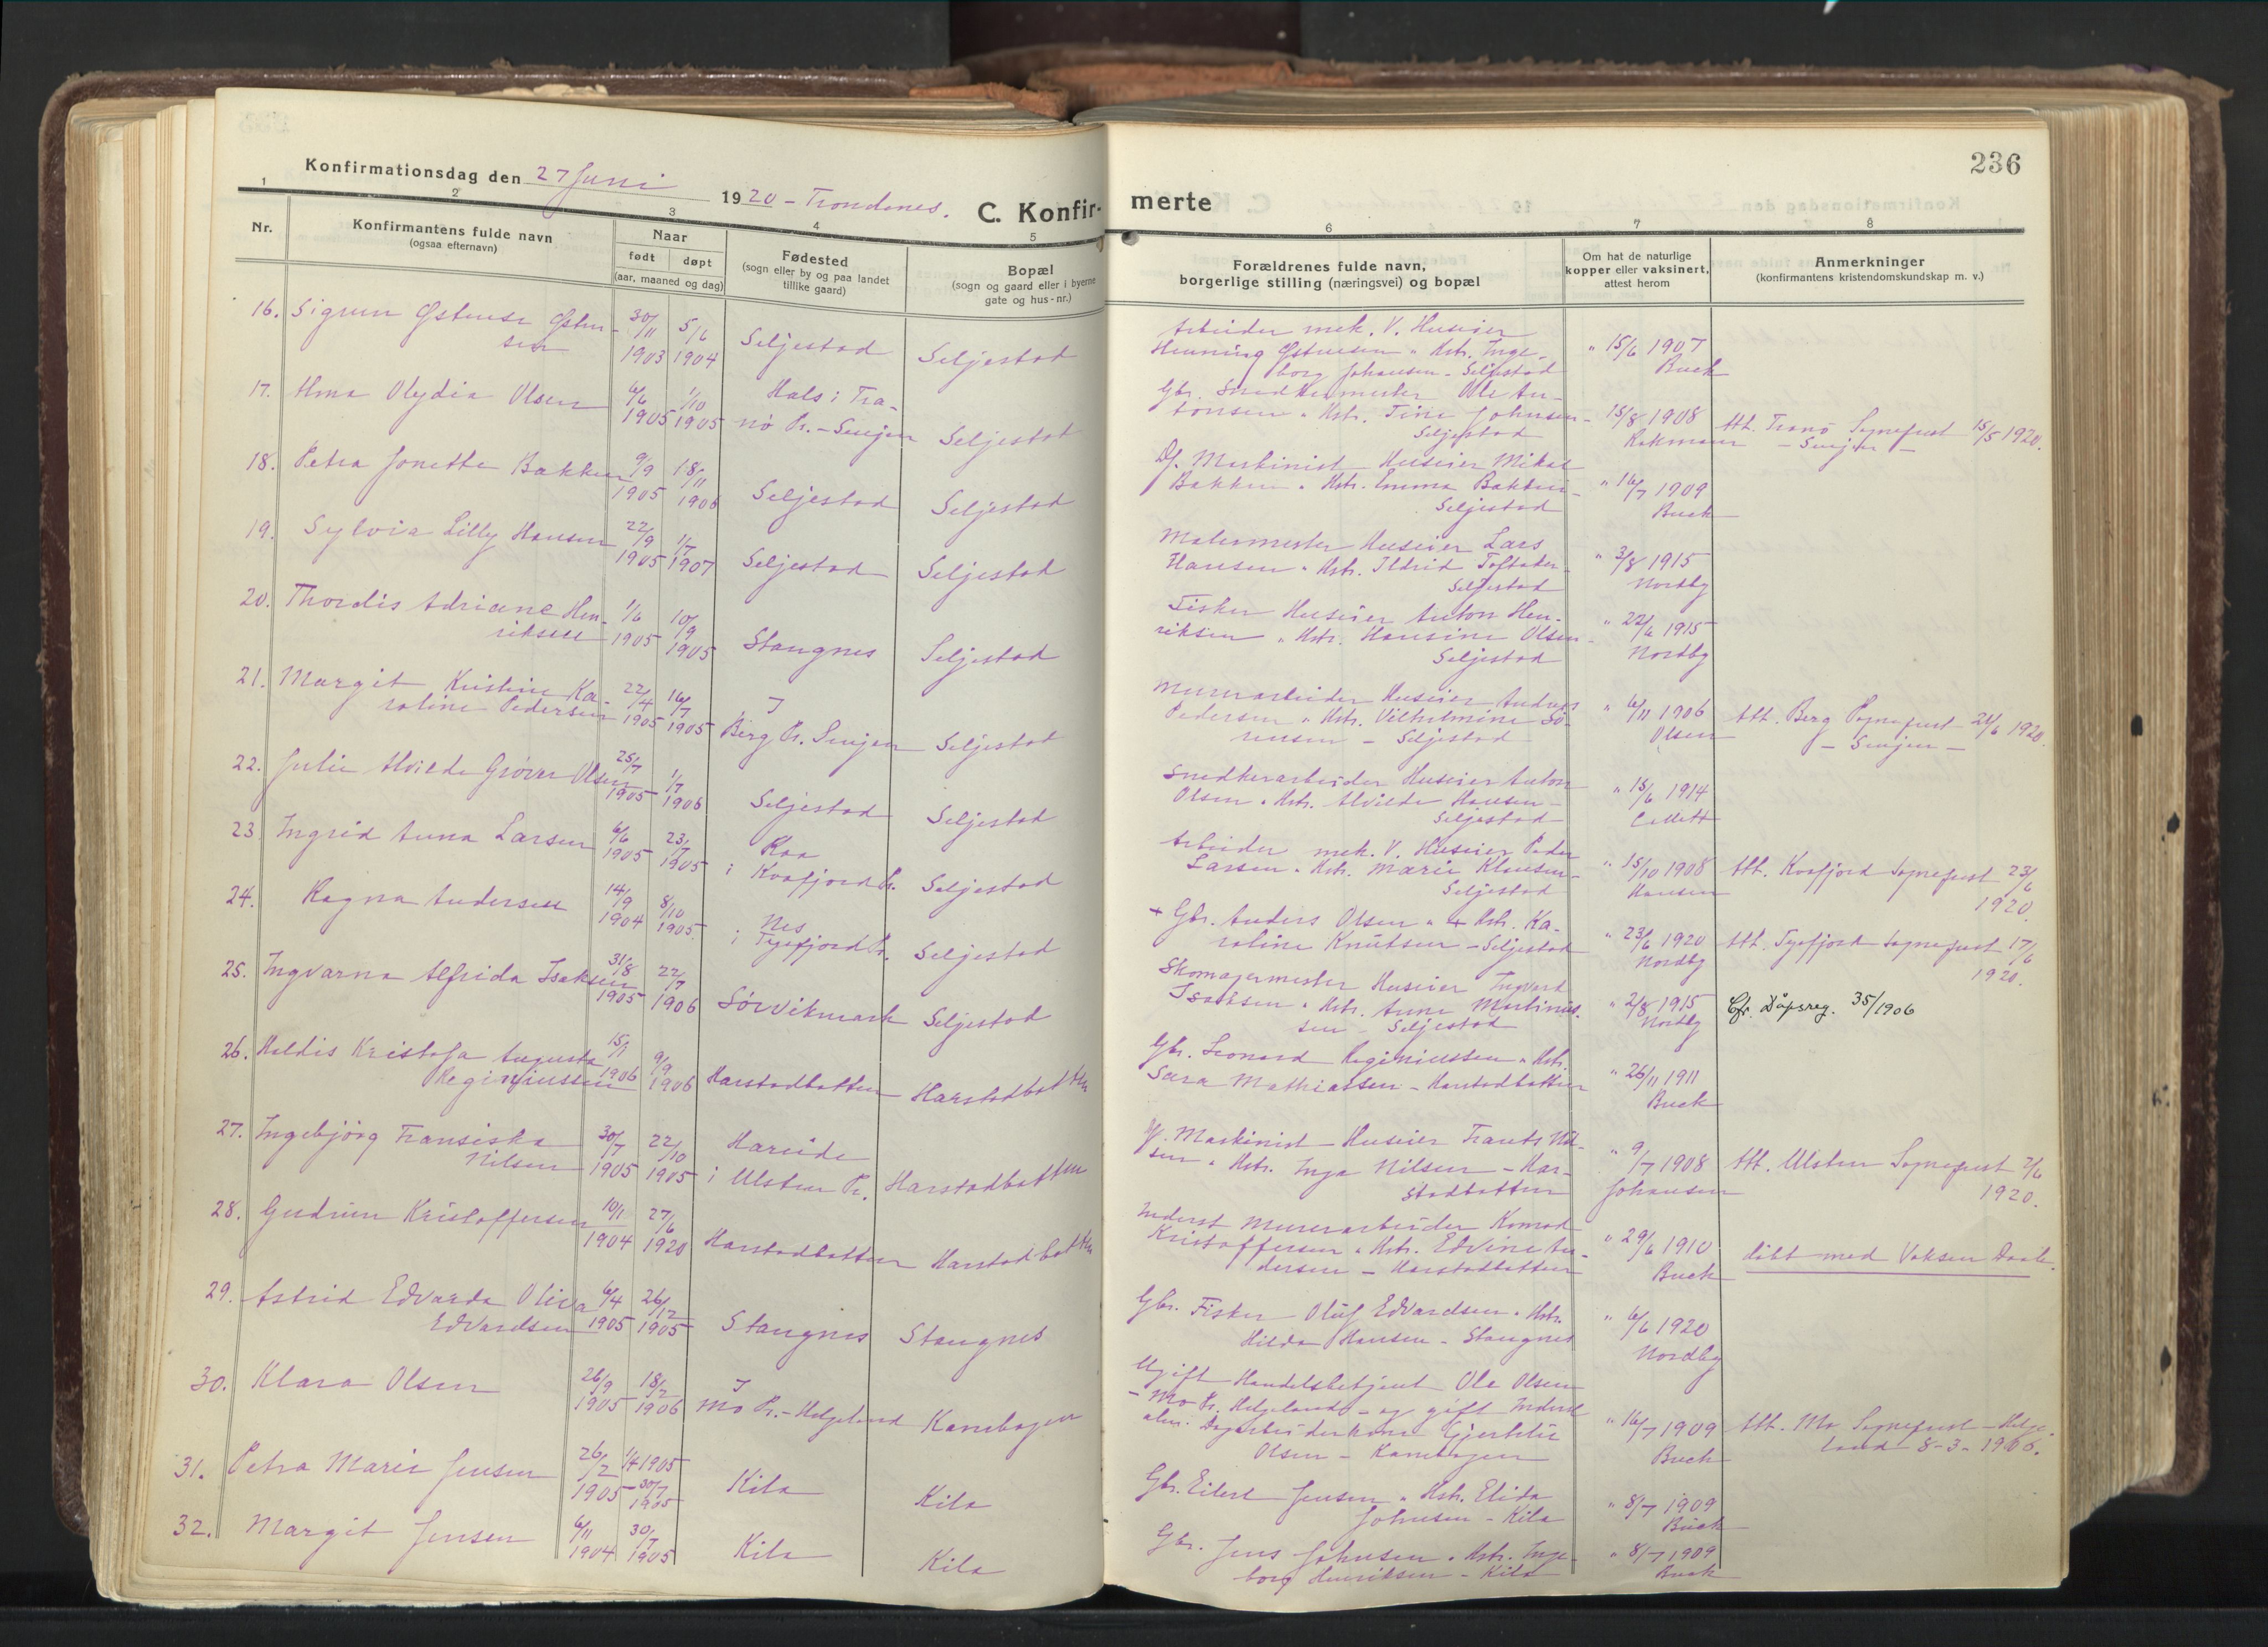 236
Konfirmationsdag den 27 Juni 1920 - Trondenes. C. Konfir- merte
1 2 3 4 5 6 7 8
Nr.
Konfirmantens fulde navn
(ogsaa efternavn)
Naar
født døpt
(aar, maaned og dag)
Fødested
(sogn eller by og paa landet
tillike gaard)
Bopæl
(sogn og gaard eller i byerne
gate og hus-nr.)
Forældrenes fulde navn,
borgerlige stilling (næringsvei) og bopæl
Om hat de naturlige
kopper eller vaksinert,
attest herom
Anmerkninger
(konfirmantens kristendomskundskap m. v.)
16. Sigrun Østense Østen-
sen
30/11 1903
5/6 1904
Seljestad
Seljestad
Arbeider mek. V. Huseier
Henning Østensen " Hstr. Inge-
borg Johansen - Seljestad
" 15/6 1907
Buck
17. Alma Olydia Olsen
6/6 1905
1/10 1905
Hals i Tra-
nø Pr. - Senjen
Seljestad
Gbr. Snedkermester Ole An-
tonsen " Hstr. Tine Johnsen -
Seljestad
15/8 1908
Rekmann
Att. Tranø Sogneprest 15/5 1920.
- Senjen -
18. Petra Jonette Bakken
9/9 1905
18/11 1906
Seljestad
Seljestad
Df. Maskinist Huseier Mikal
Bakken " Hstr. Emma Bakken -
Seljestad
" 16/7 1909
Buck
19. Sylvia Lilly Hansen
22/9 1905
1/7 1907
Seljestad
Seljestad
Malermester Huseier Lars
Hansen " Hstr. Ildrid Toftaker -
Seljestad
" 3/8 1915
Nordby
20. Thordis Adriane Hen-
riksen
1/6 1905
10/9 1905
Stangnes
Seljestad
Fisker Huseier Anton Hen-
riksen " Hstr. Hansine Olsen -
Seljestad
" 22/6 1915
Nordby
21. Margit Kristine Ka-
roline Pedersen
22/4 1905
16/7 1905
I
Berg Pr. Senjen
Seljestad
Murerarbeider Huseier Andreas
Pedersen " Hstr. Vilhelmine Sø-
rensen - Seljestad
" 6/11 1906
Olsen
Att. Berg Sogneprest 24/6 1920.
- Senjen -
22. Julie Alvilde Grøver Olsen
25/7 1905
1/7 1906
Seljestad
Seljestad
Snedkerarbeider Huseier Anton
Olsen " Hstr. Alvilde Hansen -
Seljestad
" 15/6 1914
23. Ingrid Anna Larsen
6/6 1905
23/7 1905
Raa
i Kvæfjord Pr.
Seljestad
Arbeider mek. V. Huseier Peder
Larsen " Hstr. Marie Klausen -
Seljestad
" 15/10 1908
Hansen
Att. Kvæfjord Sogneprest 23/6
1920.
24. Ragna Andersen
14/9 1904
8/10 1905.
Nes
i Tysfjord Pr.
Seljestad
+ Gbr. Anders Olsen " + Hstr. Ka-
roline Knutsen - Seljestad
" 23/6 1920
Nordby
Att. Tysfjord Sogneprest 17/6
1920.
25. Ingvarna Alfrida Isaksen
31/8 1905
22/7 1906
Sørvikmark
Seljestad
Skomagermester Huseier Ingvard
Isaksen " Hstr. Anna Martinus-
sen - Seljestad
" 2/8 1915
Nordby
Cfr. Dåpsreg. 35/1906
26. Haldis Kristofa Augusta
Reginiussen
15/1 1906
9/9 1906
Harstadbotten
Harstadbotten
Gbr. Leonard Reginiussen " Hstr.
Sara Mathiassen - Harstadbotten
" 26/11 1911
Buck
27. Ingebjørg Fransiska
Nilsen
30/7 1905
22/10 1905
Hareide
i Ulsten Pr.
Harstadbotten
Df. Maskinist - Huseier Frants Nil-
sen " Hstr. Inga Nilsen - Har-
stadbotten
" 9/7 1908
Johansen
Att. Ulsten Sogneprest 2/6
1920.
28. Gudrun Kristoffersen
10/1 1904
27/6 1920
Harstadbotten
Harstadbotten
Inderst Murerarbeider Konrad
Kristoffersen " Hstr. Edvine An-
dersen - Harstadbotten
" 29/6 1910
Buck
døbt med Voksen Daab.
29. Astrid Edvarda Oliva
Edvardsen
6/4 1905
26/12 1905
Stangnes
Stangnes
Gbr. Fisker Oluf Edvardsen " Hstr.
Hilda Hansen - Stangnes
" 6/6 1920
Nordby
30. Klara Olsen
26/9 1905
18/2 1906
I
Mo Pr. - Helgeland
Kanebogen
Ugift Handelsbetjent Ole Olsen
- Mo Pr. Helgeland - og gift Inderst
Olsen - Kanebogen
" 16/7 1909
Buck
Att. Mo Sogneprest - Helge-
land 8-3-1906.
31. Petra Marie Jensen
26/2 1905
1/4 1905
30/7 1905
Kila
Kila
Gbr. Eilert Jensen " Hstr. Elida
Johnsen - Kila
" 8/7 1909
Buck
32. Margit Jensen
6/11 1904
30/7 1905
Kila
Kila
Gbr. Jens Johnsen " Hstr. Inge-
borg Henriksen - Kila
" 8/7 1909
Buck